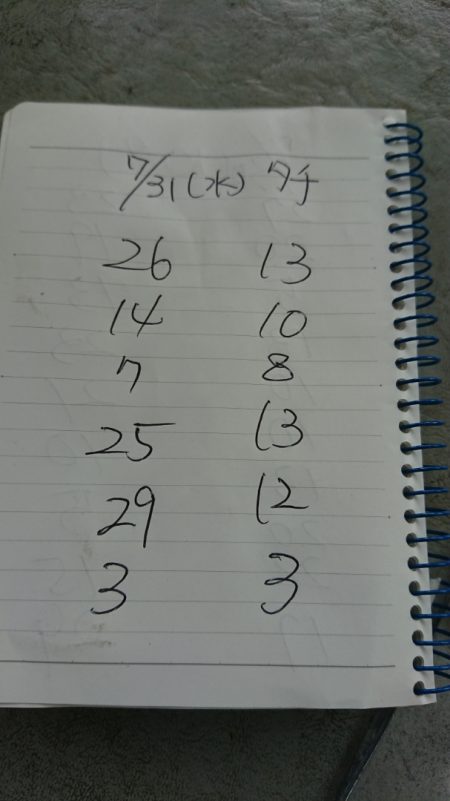 7/31(水) タチ
26 13
14 10
7 8
25 13
29 12
3 3